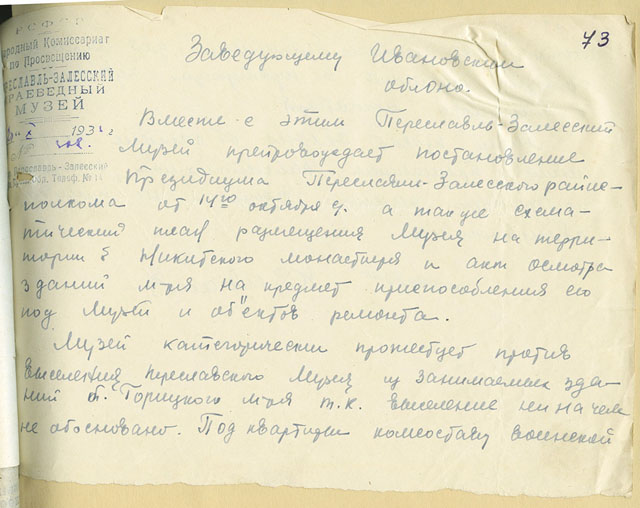 73
РСФСР
Народный Комиссариат
по Просвещению
ПЕРЕСЛАВЛЬ-ЗАЛЕССКИЙ
КРАЕВЕДНЫЙ
МУЗЕЙ
193
Переславль-Залесский
Телеф. №
Заведующему Ивановским
облоно.
Вместе с этим Переславль-Залесский
Музей препровождает постановление
Президиума Переславль-Залесского райис-
полкома от 14го октября с/г. а также схема-
тический план размещения Музея на терри-
тории б Никитского монастыря и акт осмотра
зданий м-ря на предмет приспособления его
под Музей и об"ектов ремонта.
Музей категорически протестует против
выселения Переславского Музея из занимаемых зда-
ний б. Горицкого м-ря т.к. выселение ни на чем
не обосновано. Под квартиры комсоставу воинской